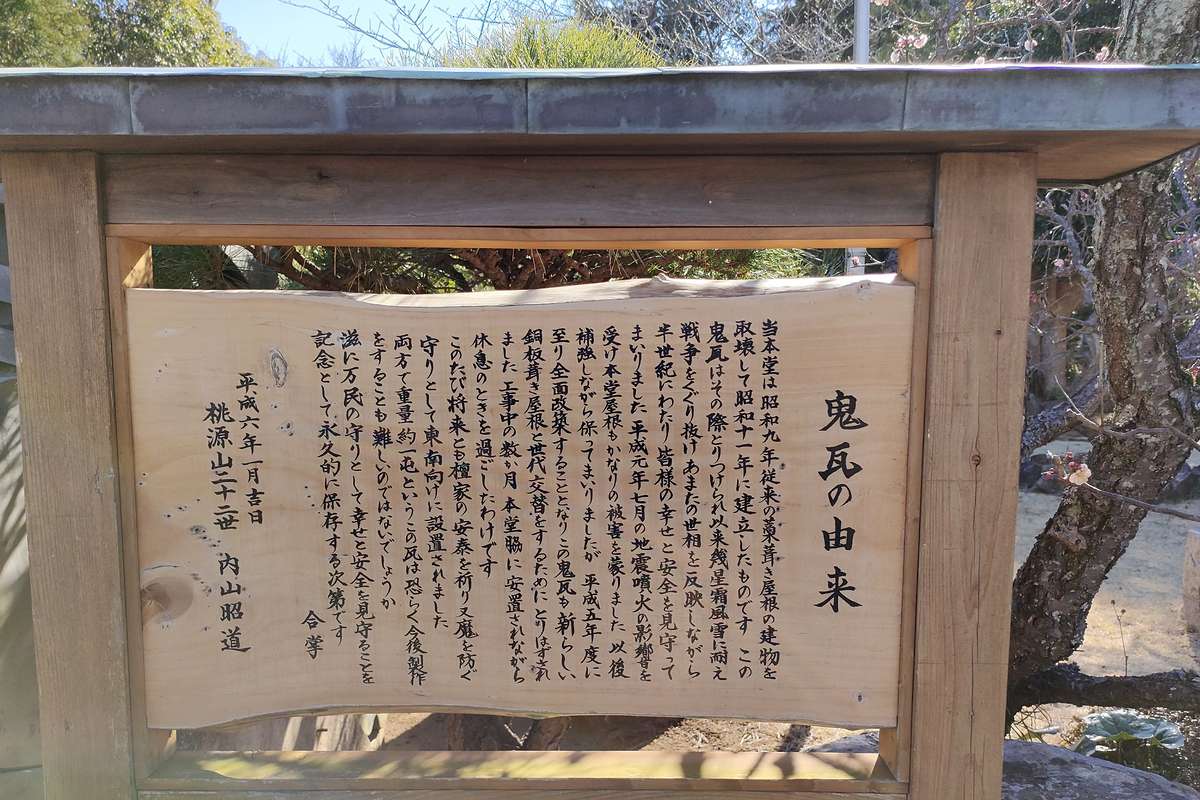 鬼瓦の由来
当本堂は昭和九年従来の藁葺き屋根の建物を
取壊して昭和十一年に建立したものです この
鬼瓦はその際とりつけられ以来幾星霜風雪に耐え
戦争をくぐり抜け あまたの世相を反映しながら
半世紀にわたり 皆様の幸せと安全を見守って
まいりました 平成元年七月の地震噴火の影響を
受け本堂屋根もかなりの被害を蒙りました 以後
補強しながら保ってまいりましたが 平成五年度に
至り全面改築することとなりこの鬼瓦も新らしい
銅板葺き屋根と世代交替をするために とりはずされ
ました 工事中の数か月 本堂脇に安置されながら
休息のときを過ごしたわけです
このたび将来とも檀家の安泰を祈り又魔を防ぐ
守りとして東南向けに設置されました
両方で重量約一屯というこの瓦は恐らく今後製作
をすることも難しいのではないでしょうか
滋に万民の守りとして幸せと安全を見守ることを
記念として永久的に保存する次第です
合掌
平成六年一月吉日
桃源山二十二世 内山昭道